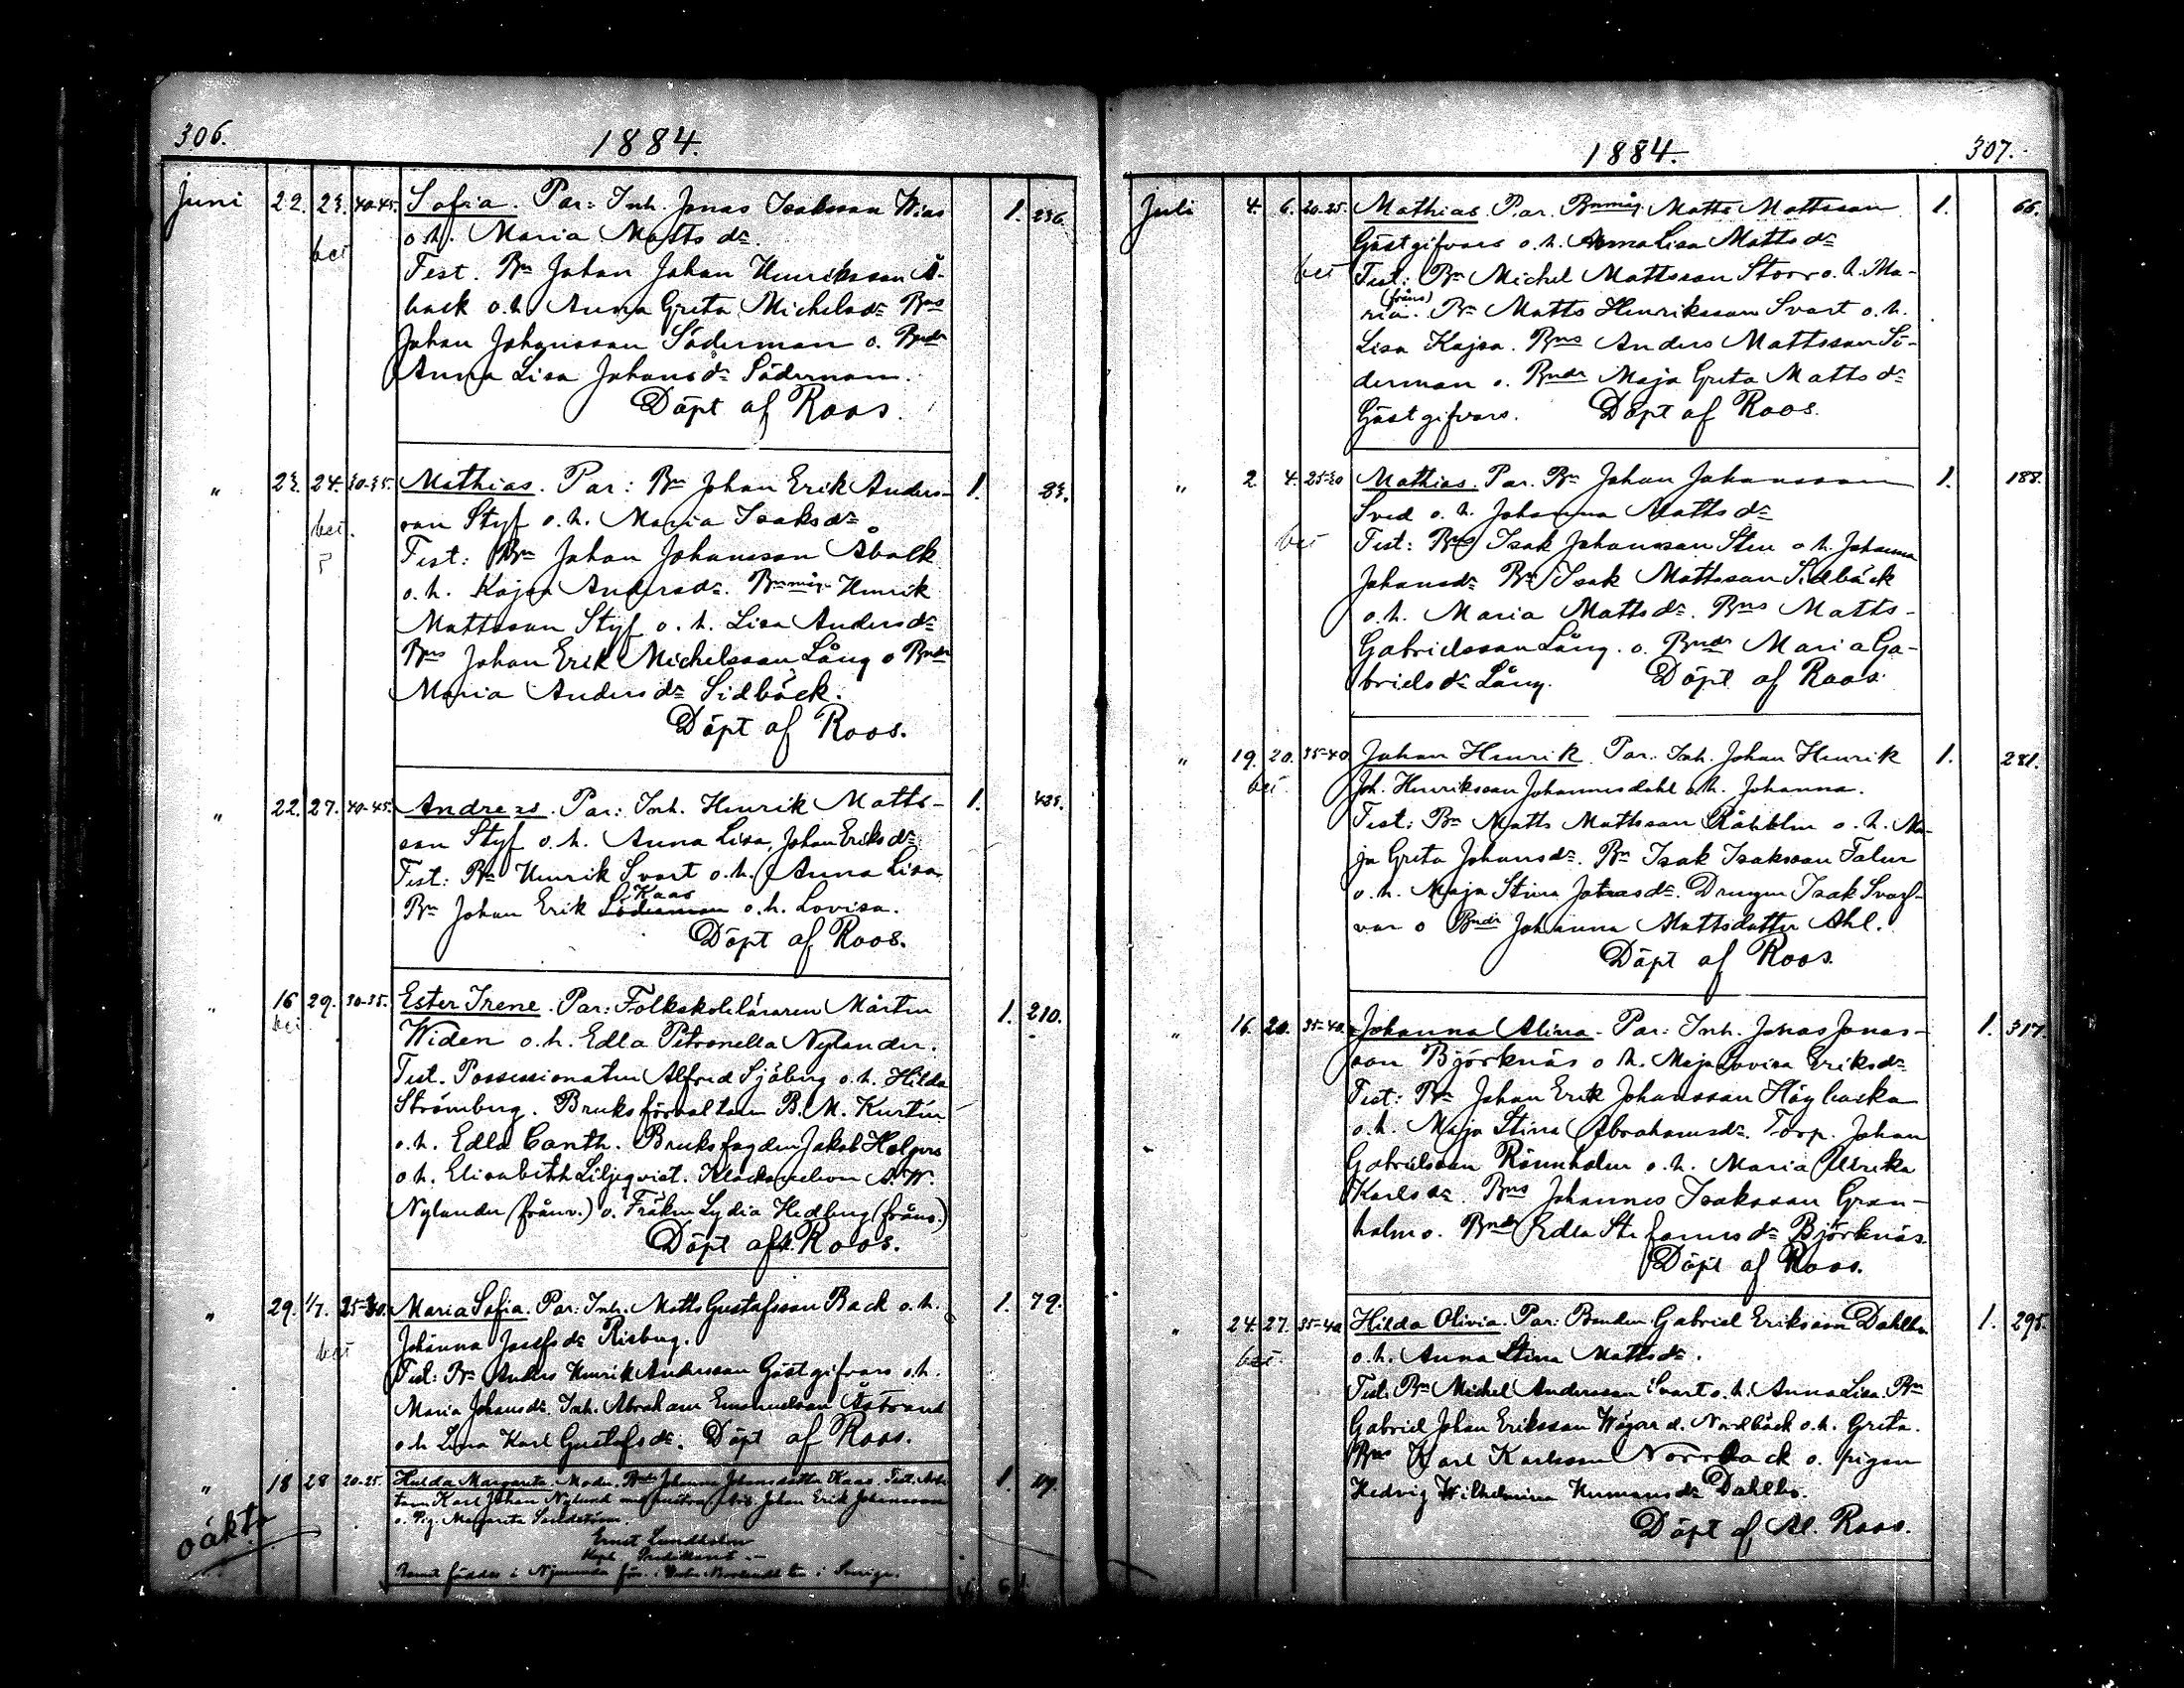 306.
1884.
Juni 22. 23. 40-45. Sofia. Par: Inh. Jonas Isaksson Wias 1. 236.
o.h. Maria Matts dr.
bet
Test. Bn Johan Johan Henriksson Å-
back o.h. Anna Greta Michelsdr Bns
Johan Johansson Söderman o. Bndr
Anna Lisa Johansdr Söderman.
Döpt af Roos.
" 23. 24. 30-35. Mathias. Par: Bn Johan Erik Anders- 1. 83.
son Styf o.h. Maria Isaksdr
bet.
Test: Bn Johan Johansson Åback
o.h. Kajsa Andersdr. Bnmåg Henrik
Mattsson Styf o.h. Lisa Andersdr
Bns Johan Erik Michelsson Lång o Bndr
Maria Andersdr Sidbäck.
Döpt af Roos.
" 22. 27. 40-45. Andreas. Par: Inh. Henrik Matts- 1.
son Styf o.h. Anna Lisa, Johan Eriksdr
Test: Bn Henrik Svart o.h. Anna Lisa
Kaas
Bn Johan Erik Söderman o.h. Lovisa.
Döpt af Roos.
" 16 29. 30-35. Ester Irene. Par: Folkskoleläraren Mårten 1. 210.
bet
Widen o.h. Edla Petronella Nylander.
Test. Possessionaten Alfred Sjöberg o.h. Hilda
Strömberg. Bruksförvaltaren B. M. Kurtén
o.h. Edla Canth. Bruksfogden Jakob Holgers
o.h. Elisabeth Liljeqvist. Klockarelven A. W.
Nylander (frånv.) o. Fröken Lydia Hedberg (frånv.)
Döpt af A. Roos.
" 29. 1/7. 25-30. Maria Sofia. Par: Inh. Matts Gustafsson Back o.h. 1. 79.
Johanna Josefsdr Risberg.
bet
Test: Bn Anders Henrik Andersson Gästgifvars o.h.
Maria Johansdr. Inh. Abraham Emanuelsson Åstrand
o.h Lena Karl Gustafsdr. Döpt af Roos.
" 18 28 20-25. Hulda Margareta. Moder: Bndr Johanna Johansdotter Kaas. Test. Arbe-
taren Karl Johan Nylund m hustru, Johan Erik Johansson
o. Pig. Margareta Sandström.
oäkta
Ernst Lundholm
Kapl. Predikant.
Barnet föddes i Njurunda förs. i Vester Norrlands län i Sverige.
1884.
307.
Juli 4. 6. 20-25. Mathias. Par. Bnmåg Matts Mattsson 1. 66.
Gästgifvars o.h. Anna Lisa Matts dr
bet
Test: Bn Michel Mattsson Storr o.h. Ma-
(frånv)
ria. Bn Matts Henriksson Svart o.h.
Lisa Kajsa. Bns Anders Mattsson Sö-
derman o. Bndr Maja Greta Matts dr
Gästgifvars. Döpt af Roos.
" 2. 4. 25-30 Mathias. Par. Bn Johan Johansson 1. 188.
Sved o.h. Johanna Matts dr
bet
Test: Bns Isak Johansson Sten o.h. Johanna
Johansdr. Bn Isak Mattsson Sidbäck
o.h. Maria Matts dr. Bns Matts
Gabrielsson Lång. o. Bndr Maria Ga-
briels dr Lång. Döpt af Roos.
" 19. 20. 35-40 Johan Henrik. Par. Inh. Johan Henrik 1. 281.
bet
Joh. Henriksson Johannesdahl o.h. Johanna.
Test: Bn Matts Mattsson o.h. Ma-
ja Greta Johansdr. Bn Isak Isaksson Falur
o.h. Maja Stina Jonasdr. Drängen Isak Svarf-
var o Bndr Johanna Mattsdotter Ahl.
Döpt af Roos.
" 16. 20. 35-40. Johanna Alina. Par: Inh. Jonas Jonas- 1. 317.
son Björknäs o h. Maja Lovisa Eriksdr
Test: Bn Johan Erik Johansson Högbacka
o.h. Maja Stina Abrahamsdr. Torp. Johan
Gabrielsson Rönnholm o.h. Maria Ulrika
Karlsdr. Bns Johannes Isaksson Gran-
holm o. Bndr Edla Stefansdr Björknäs.
Döpt af Roos.
" 24. 27. 35-40 Hilda Olivia. Par: Bonden Gabriel Eriksson Dahlbo 1. 295.
bet.
o.h. Anna Stina Mattsdr.
Test. Bn Michel Andersson Svart o.h. Anna Lisa. Bn
Gabriel Johan Eriksson Wägar d. Nordbäck o.h. Greta.
Bns Karl Karlsson Norrback o. pigan
Hedvig Wilhelmina Hermansdr Dahlbo.
Döpt af Al. Roos.